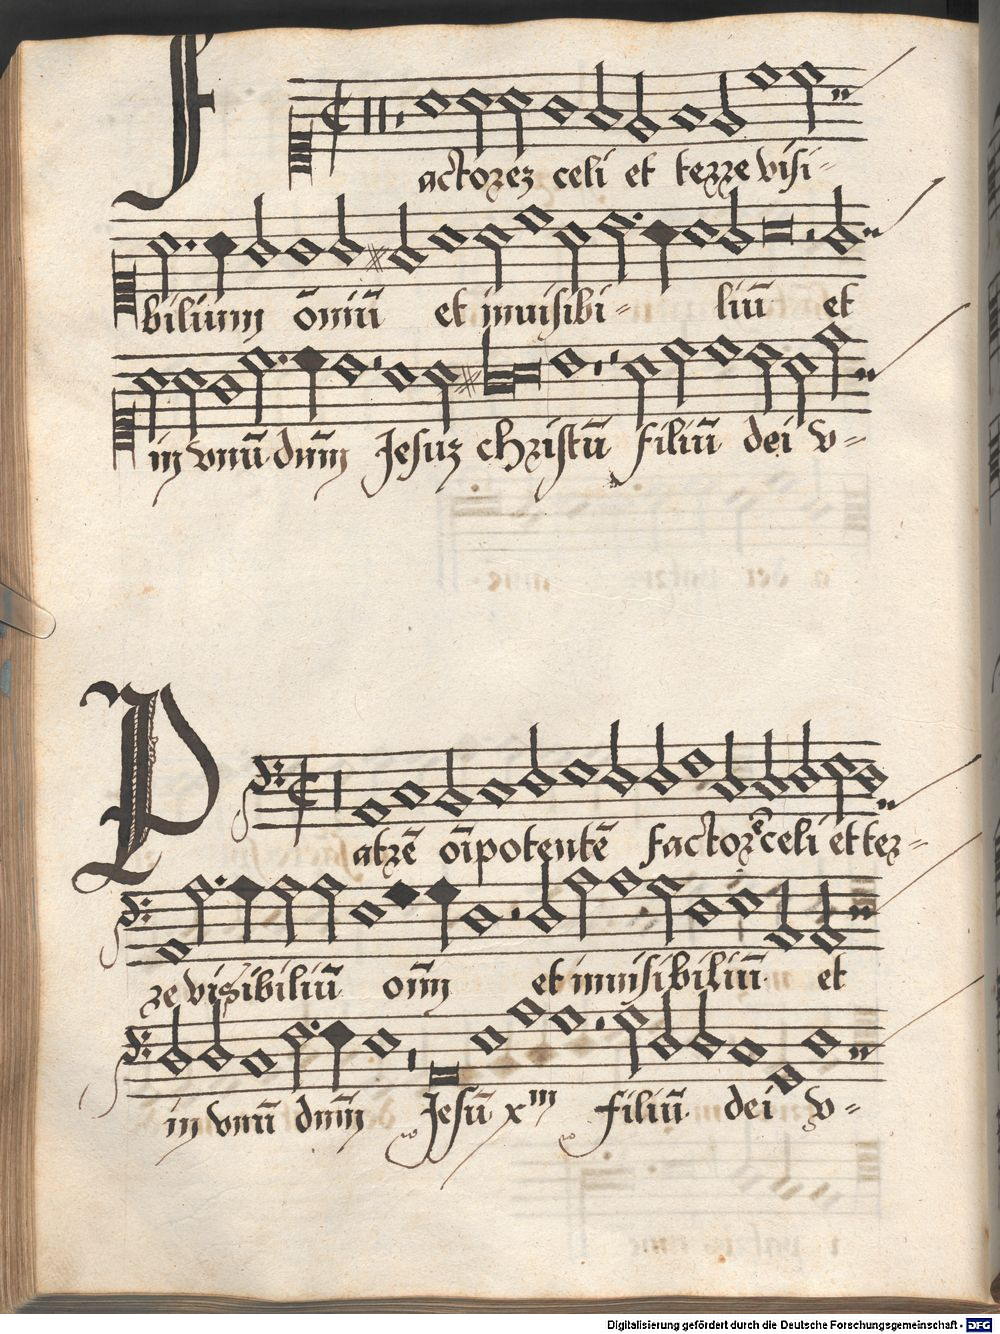 Factorez celi et terre visi-
bilium om̄iū et inuisibi- liū et
in vnū dn̄m Jesuz christū filiū dei v-
Patrē oīpotentē factorē celi et ter-
re visibiliū om̄ et inuisibiliū et
in vnū dn̄m Jesū xm filiū dei v-
Digitalisierung gefördert durch die Deutsche Forschungsgemeinschaft - DFG